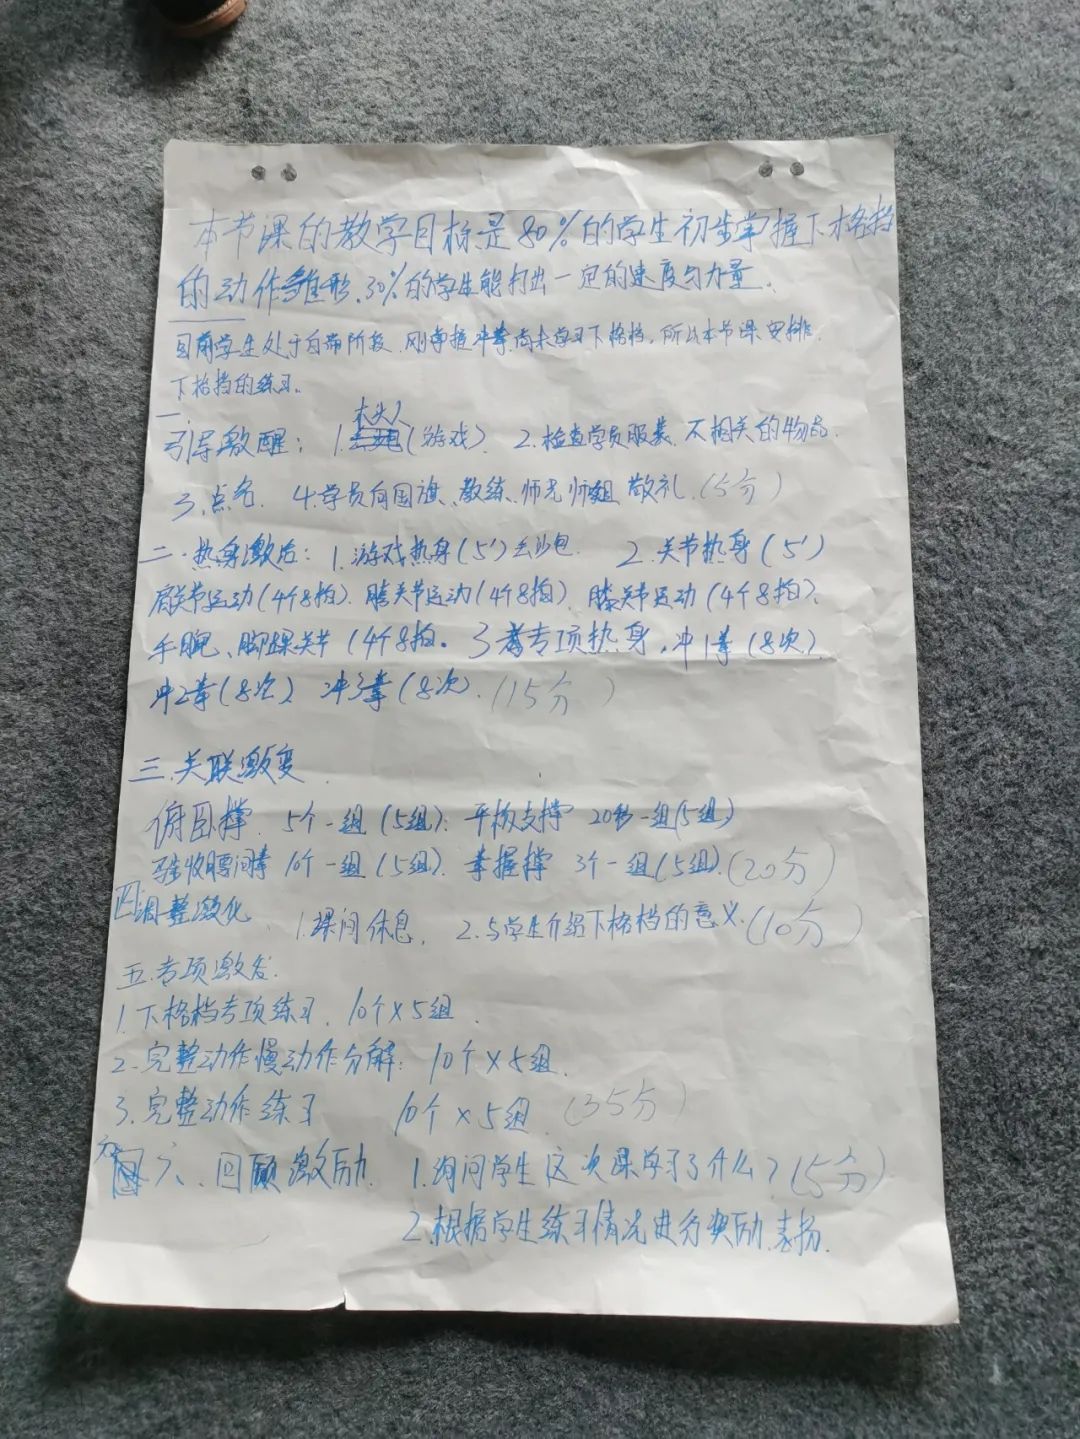 本节课的教学目标是80%的学生初步掌握下格挡
的动作雏形、30%的学生能打出一定的速度与力量。
目前学生处于白带阶段、刚掌握冲拳、尚未学习下格挡,所以本节课安排
下格挡的练习。
一、
木头人
引导激醒: 1.(游戏) 2.检查学员服装、不相关的物品
3.点名 4.学员向国旗、教练、师兄师姐敬礼.(5分)
二.热身激活: 1.游戏热身(5')丢沙包 2.关节热身(5')
肩关节运动(4个8拍)、膝关节运动(4个8拍)
手腕、脚踝关节(4个8拍。3.专项热身,冲1拳(8次)
冲2拳(8次) 冲3拳(8次).(15分)
三.关联激变
俯卧撑 5个一组(5组); 平板支撑 20秒一组(5组)
10个一组(5组). 拳握撑 3个一组(5组).(20分)
四调整激化 1.课间休息, 2.与学生介绍下格档的意义.(10分)
五.专项激发.
1.下格档专项练习、10个×5组.
2.完整动作慢动作分解: 10个×5组.
3.完整动作练习 10个×5组. (35分)
六、回顾激励 1.询问学生这次课学习了什么?(5分)
2.根据学生练习情况进行奖励、表扬.